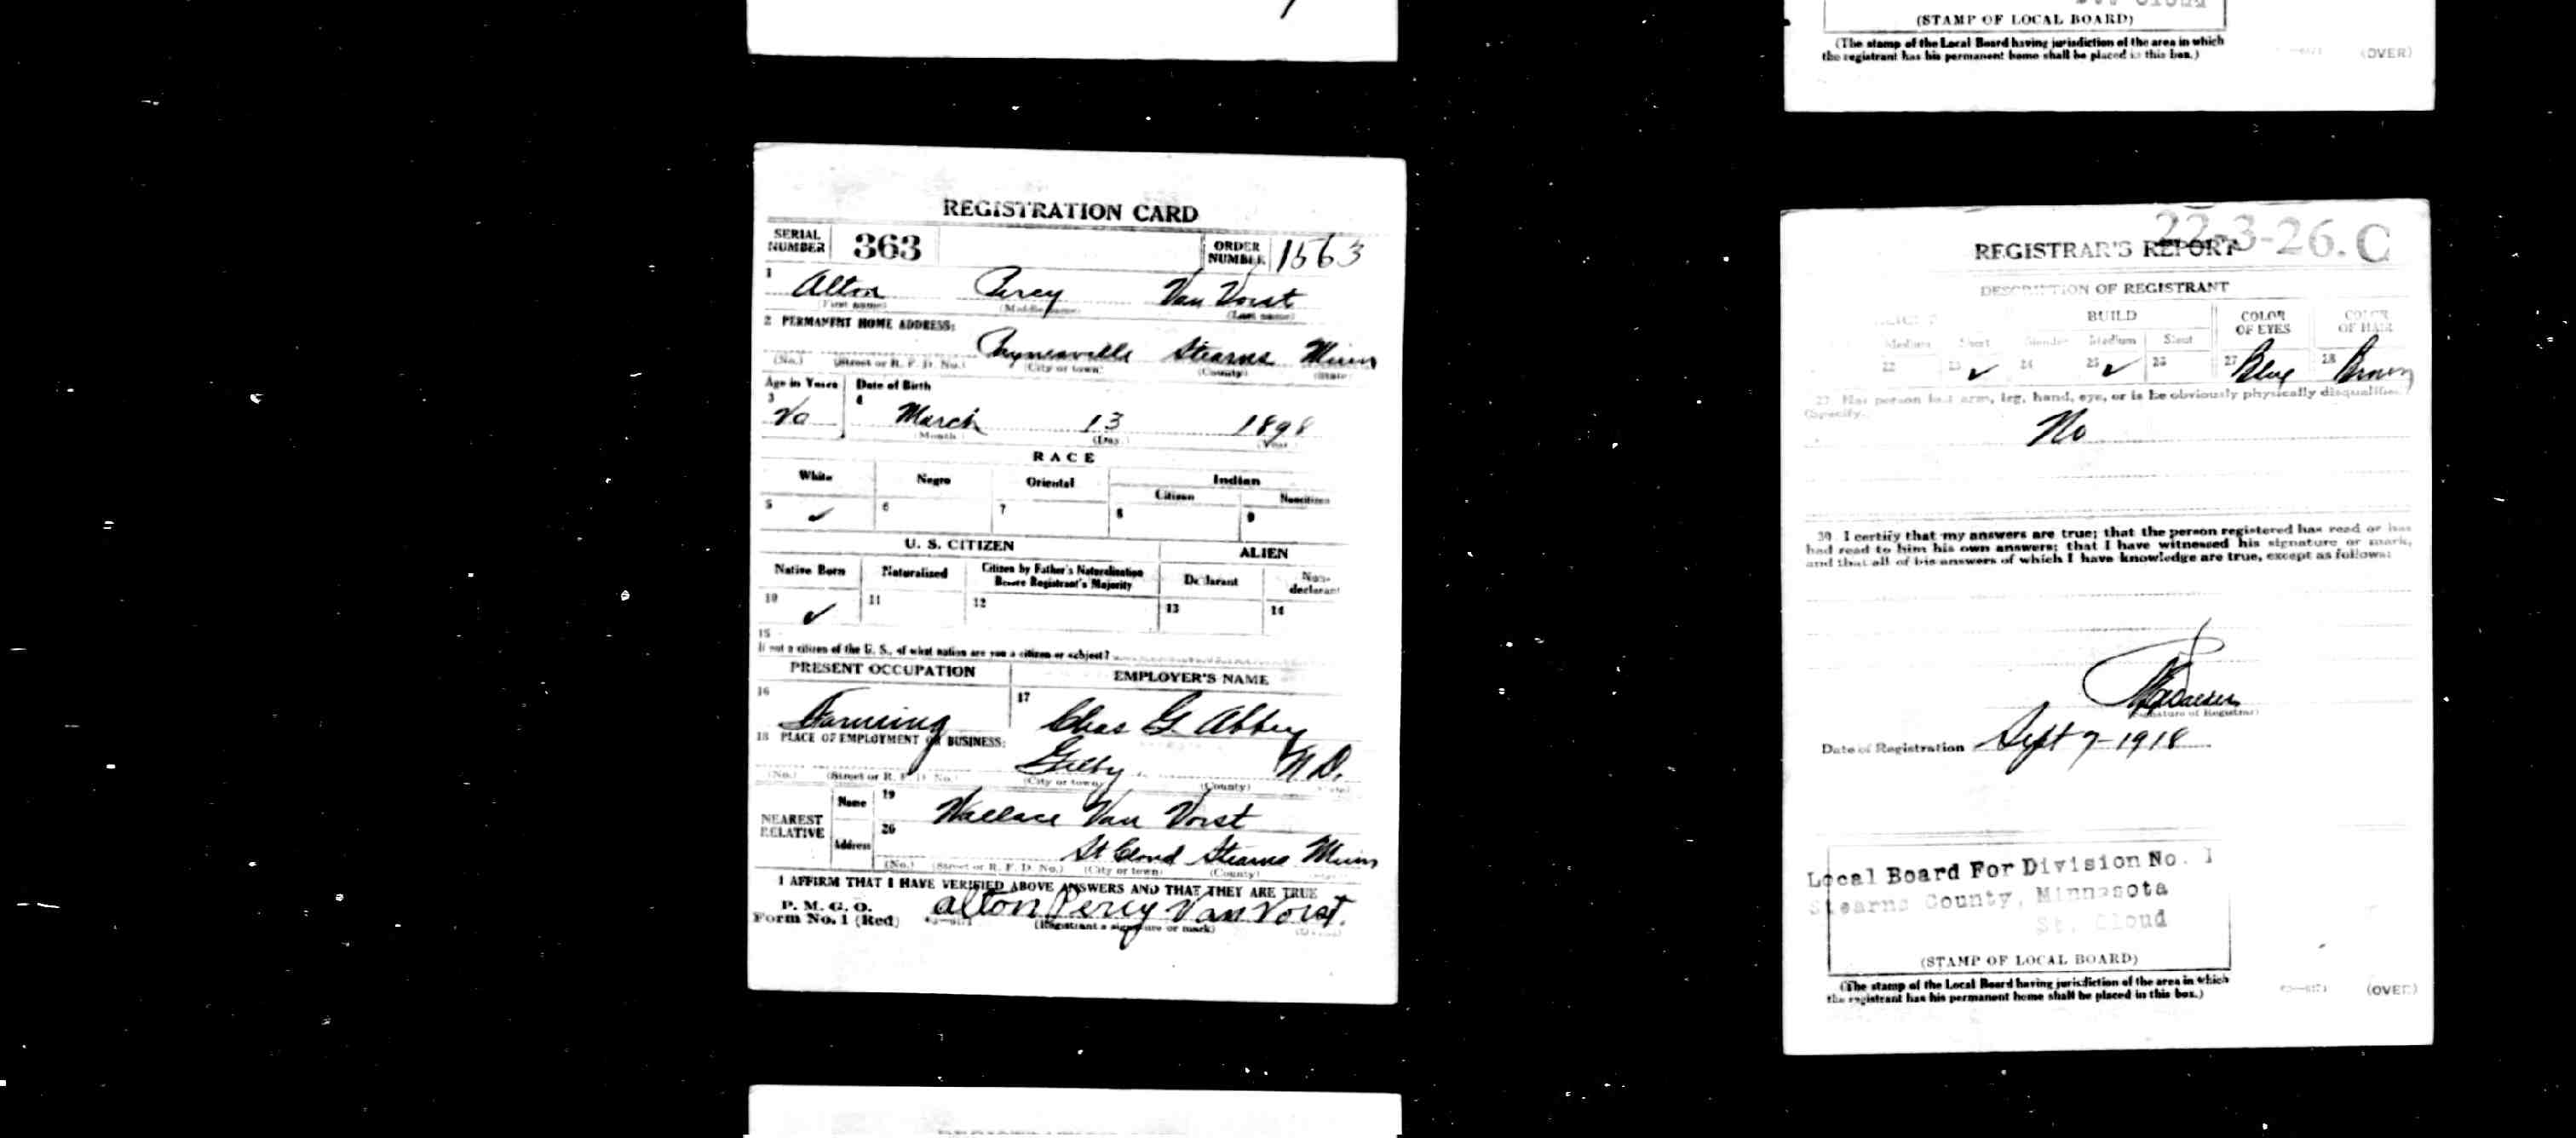 REGISTRATION CARD
SERIAL NUMBER 363 ORDER NUMBER 1563
1 Alton Percy Van Vorst
(First name) (Middle name) (Last name)
2 PERMANENT HOME ADDRESS:
Paynesville Stearns Minn
(No.) (Street or R. F. D. No.) (City or town) (County) (State)
Age in Years Date of Birth
3 20 4 March 13 1898
(Month) (Day) (Year)
RACE
White Negro Oriental Indian
Citizen Noncitizen
5 ✓ 6 7 8 9
U. S. CITIZEN ALIEN
Native Born Naturalized Citizen by Father's Naturalization Before Registrant's Majority Declarant Non-declarant
10 ✓ 11 12 13 14
15
If not a citizen of the U. S., of what nation are you a citizen or subject?
PRESENT OCCUPATION EMPLOYER'S NAME
16 Farming 17 Chas G. Abbey
18 PLACE OF EMPLOYMENT OR BUSINESS:
Gilby N.D.
(No.) (Street or R. F. D. No.) (City or town) (County) (State)
NEAREST RELATIVE
Name 19 Wallace Van Vorst
Address 20 St Cloud Stearns Minn
(No.) (Street or R. F. D. No.) (City or town) (County)
I AFFIRM THAT I HAVE VERIFIED ABOVE ANSWERS AND THAT THEY ARE TRUE
P. M. G. O.
Form No. 1 (Red) Alton Percy Van Vorst.
(Registrant's signature or mark) (Over)
(STAMP OF LOCAL BOARD)
(The stamp of the Local Board having jurisdiction of the area in which
the registrant has his permanent home shall be placed in this box.)
(OVER)
22-3-26. C
REGISTRAR'S REPORT
DESCRIPTION OF REGISTRANT
BUILD COLOR OF EYES COLOR OF HAIR
Medium Short Slender Medium Stout
22 23 ✓ 24 25 ✓ 26 27 Blue 28 Brown
29 Has person lost arm, leg, hand, eye, or is he obviously physically disqualified?
(Specify.)
No
30. I certify that my answers are true; that the person registered has read or has
had read to him his own answers; that I have witnessed his signature or mark,
and that all of his answers of which I have knowledge are true, except as follows:
(Signature of Registrar)
Date of Registration Sept 7-1918
Local Board For Division No. 1
Stearns County, Minnesota
St. Cloud
(STAMP OF LOCAL BOARD)
(The stamp of the Local Board having jurisdiction of the area in which
the registrant has his permanent home shall be placed in this box.)
(OVER)